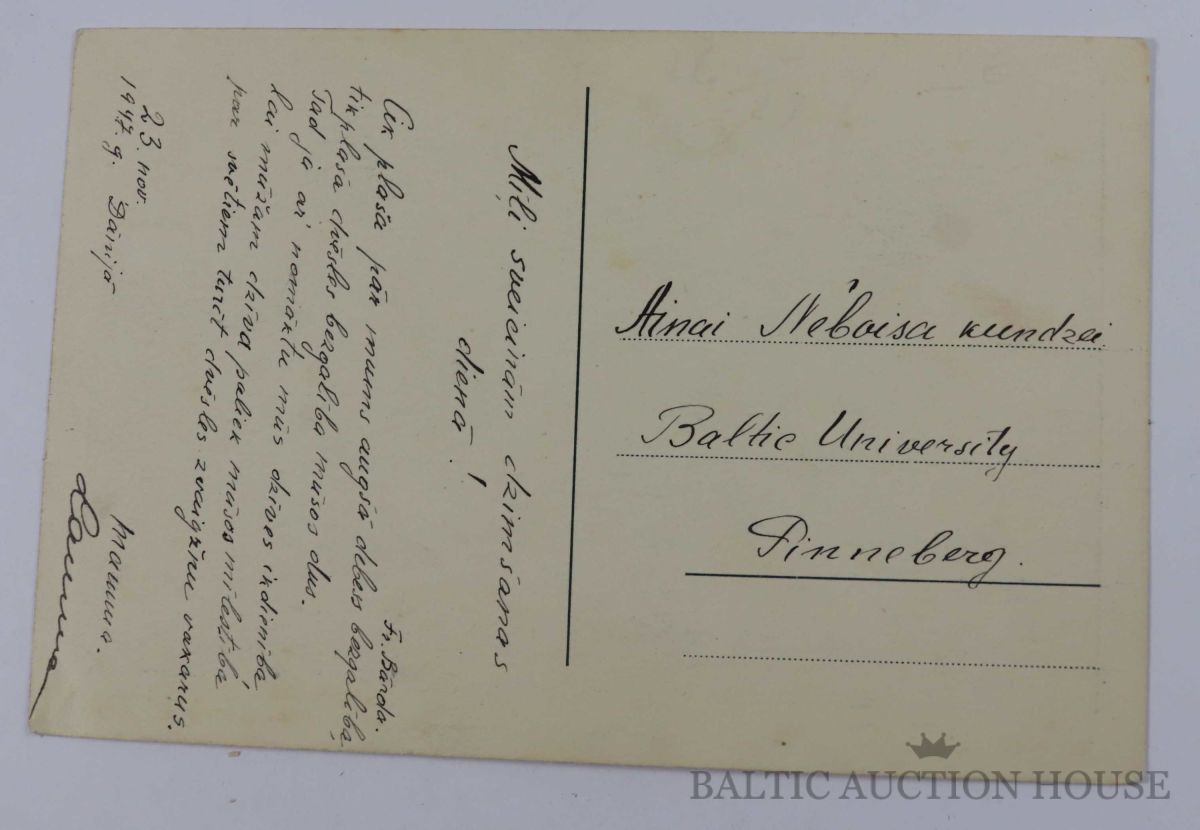 Mīļi sveicinām dzimšanas
dienā!
Fr. Bārda.
Cik plaša pār mums augšā debess bezgalība,
tikplaša dvēsles bezgalība mūsos dus.
Tad ja arī nomāktu mūs dzīves ikdienība
lai mūžam dzīva paliek mūsos mīlestība
par svētiem turēt dvēsles zvaigžņu vakarus.
23. nov.
1947. g. Dānijā
Mamma.
Lauma
Ainai Nēboisa kundzei
Baltic University
Pinneberg.
BALTIC AUCTION HOUSE